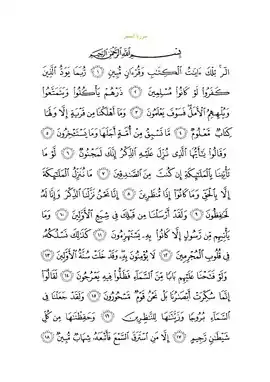 سورة الحجر
بِسْمِ اللَّهِ الرَّحْمَٰنِ الرَّحِيمِ
الٓر تِلْكَ ءَايَٰتُ الْكِتَٰبِ وَقُرْءَانٍ مُّبِينٍ ١ رُّبَمَا يَوَدُّ الَّذِينَ
كَفَرُوا لَوْ كَانُوا مُسْلِمِينَ ٢ ذَرْهُمْ يَأْكُلُوا وَيَتَمَتَّعُوا
وَيُلْهِهِمُ الْأَمَلُ فَسَوْفَ يَعْلَمُونَ ٣ وَمَا أَهْلَكْنَا مِن قَرْيَةٍ إِلَّا وَلَهَا
كِتَابٌ مَّعْلُومٌ ٤ مَّا تَسْبِقُ مِنْ أُمَّةٍ أَجَلَهَا وَمَا يَسْتَـْٔخِرُونَ ٥
وَقَالُوا يَٰٓأَيُّهَا الَّذِي نُزِّلَ عَلَيْهِ الذِّكْرُ إِنَّكَ لَمَجْنُونٌ ٦ لَّوْ مَا
تَأْتِينَا بِالْمَلَٰٓئِكَةِ إِن كُنتَ مِنَ الصَّٰدِقِينَ ٧ مَا نُنَزِّلُ الْمَلَٰٓئِكَةَ
إِلَّا بِالْحَقِّ وَمَا كَانُوا إِذًا مُّنظَرِينَ ٨ إِنَّا نَحْنُ نَزَّلْنَا الذِّكْرَ وَإِنَّا لَهُ
لَحَٰفِظُونَ ٩ وَلَقَدْ أَرْسَلْنَا مِن قَبْلِكَ فِي شِيَعِ الْأَوَّلِينَ ١٠ وَمَا
يَأْتِيهِم مِّن رَّسُولٍ إِلَّا كَانُوا بِهِ يَسْتَهْزِءُونَ ١١ كَذَٰلِكَ نَسْلُكُهُ
فِي قُلُوبِ الْمُجْرِمِينَ ١٢ لَا يُؤْمِنُونَ بِهِ وَقَدْ خَلَتْ سُنَّةُ الْأَوَّلِينَ ١٣
وَلَوْ فَتَحْنَا عَلَيْهِم بَابًا مِّنَ السَّمَاءِ فَظَلُّوا فِيهِ يَعْرُجُونَ ١٤ لَقَالُوا
إِنَّمَا سُكِّرَتْ أَبْصَٰرُنَا بَلْ نَحْنُ قَوْمٌ مَّسْحُورُونَ ١٥ وَلَقَدْ جَعَلْنَا فِي
السَّمَاءِ بُرُوجًا وَزَيَّنَّٰهَا لِلنَّٰظِرِينَ ١٦ وَحَفِظْنَٰهَا مِن كُلِّ
شَيْطَٰنٍ رَّجِيمٍ ١٧ إِلَّا مَنِ اسْتَرَقَ السَّمْعَ فَأَتْبَعَهُ شِهَابٌ مُّبِينٌ ١٨